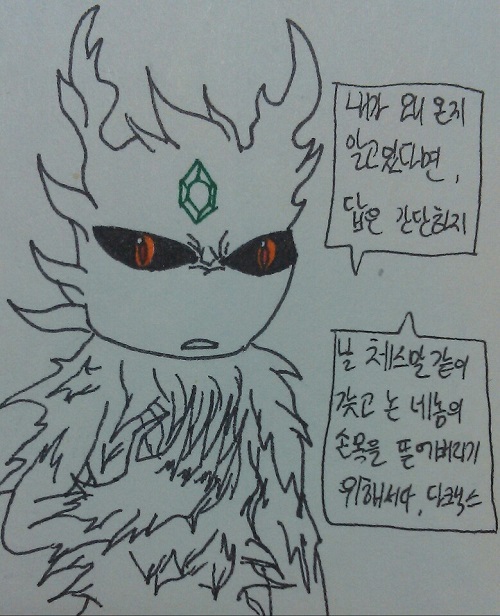 내가 왜 온지
알고있다면,
답은 간단하지
날 체스말 같이
갖고 논 네놈의
손목을 뜯어버리기
위해서다, 다크섹스